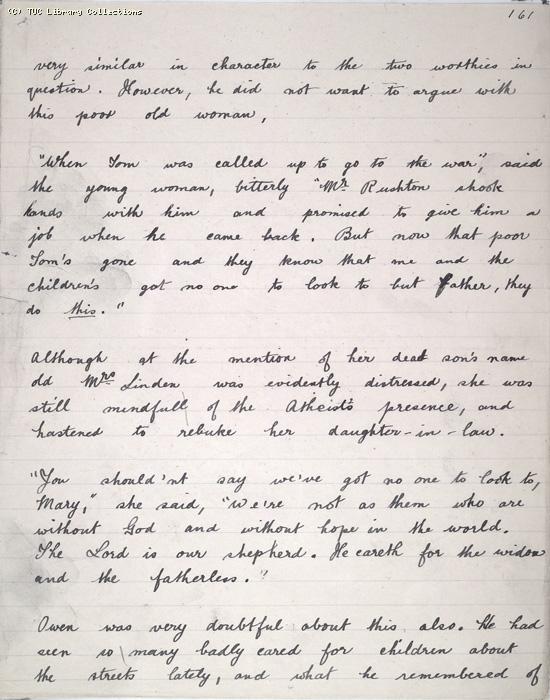 (C) TUC Library Collections
161
very similar in character to the two worthies in
question. However, he did not want to argue with
this poor old woman,
"When Tom was called up to go to the war", said
the young woman, bitterly "Mr Rushton shook
hands with him and promised to give him a
job when he came back. But now that poor
Tom's gone and they know that me and the
children's got no one to look to but Father, they
do this."
Although at the mention of her dead son's name
old Mrs Linden was evidently distressed, she was
still mindfull of the Atheist's presence, and
hastened to rebuke her daughter-in-law.
"You should'nt say we've got no one to look to,
Mary," she said, "We're not as them who are
without God and without hope in the world.
The Lord is our shepherd. He careth for the widow
and the fatherless."
Owen was very doubtful about this also. He had
seen so many badly cared for children about
the streets lately, and what he remembered of